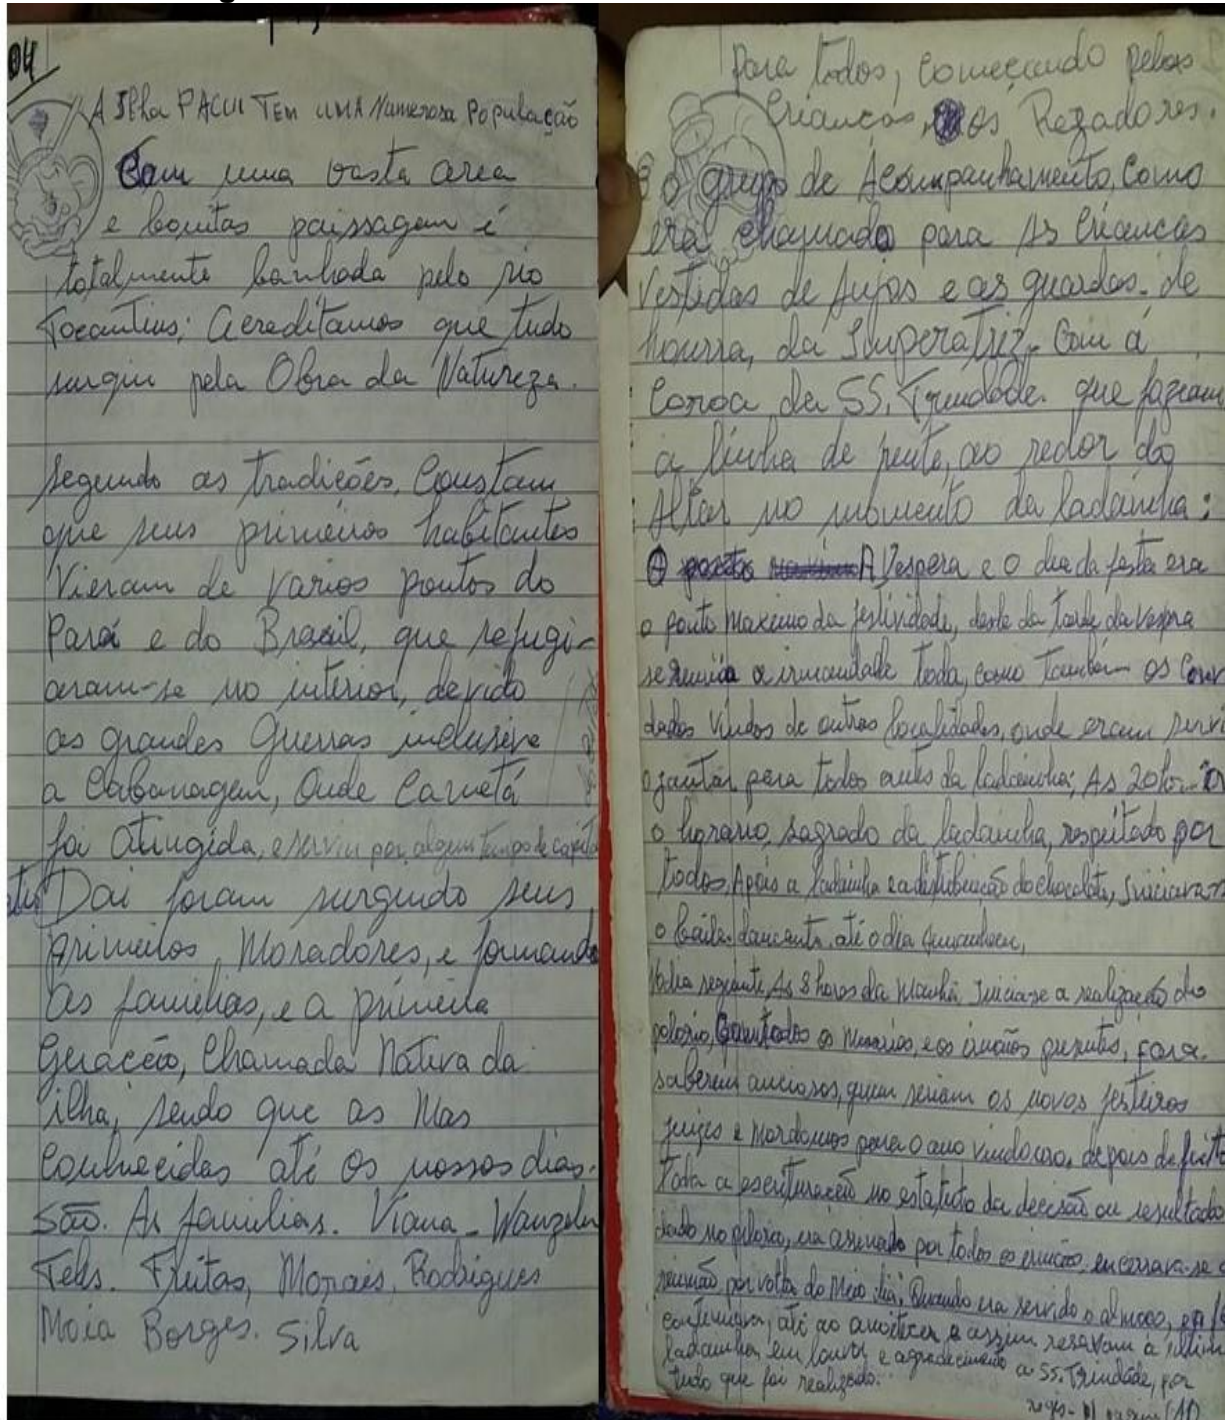 04
A Ilha PACUI TEM UMA Numerosa População
Com uma vasta area
e bonitas paissagem é
totalmente banhada pelo rio
Tocantins; Acreditamos que tudo
surgiu pela Obra da Natureza.
segundo as tradições, Constam
que seus primeiros habitantes
Vieram de varios pontos do
Pará e do Brasil, que refugi-
aram-se no interior, devido
as grandes Guerras inclusive
a Cabanagem, Onde Cametá
foi Atingida, e serviu por algum tempo de capital
Dai foram surgindo seus
primeiros Moradores, e formando
as familias, e a primeira
Geração, Chamada Nativa da
ilha, sendo que as Mas
Conhecidas até Os nossos dias.
São. As familias. Viana - Wanzeler
Teles. Freitas, Morais, Rodrigues
Maia Borges. Silva
para todos, começando pelas
Crianças, os Rezadores.
e o grupo de Acompanhamento, Como
era chamado para As Crianças
Vestidas de Anjos e as guardas. de
honrra, da Imperatriz. Com a
Coroa da SS. Trindade. que faziam
a linha de frente, ao redor do
Altar no momento da ladainha:
A Vespera e o dia da festa era
o ponto maximo da festividade, desde da tarde da vespra
se reunia a irmandade toda, como também os Convi
dados vindos de outras localidades, onde eram servi
o jantar para todos antes da ladainha; As 20 hr
o horario sagrado da ladainha, respeitado por
todos, Após a ladainha e a distribuição do chocolate, Iniciavam
o baile dançante até o dia Amanhecer,
No dia seguinte, As 8 horas da Manhã Inicia-se a realização do
peloro, os Mesarios, e os irmãos presentes, para
saberem anciosos, quem seriam os novos festeiros
juizes e Mordomos para O ano vindouro, depois de feito
toda a escrituração no estatuto da decisão ou resultado
dado no peloro, era assinado por todos os irmãos, encerrava-se a
reunião por volta do Meio dia, Quando era servido o almoço,
até ao anoitecer e assim resavam a ultim
ladainha, em louvor e agradecimento a SS. Trindade, por
tudo que foi realizado.